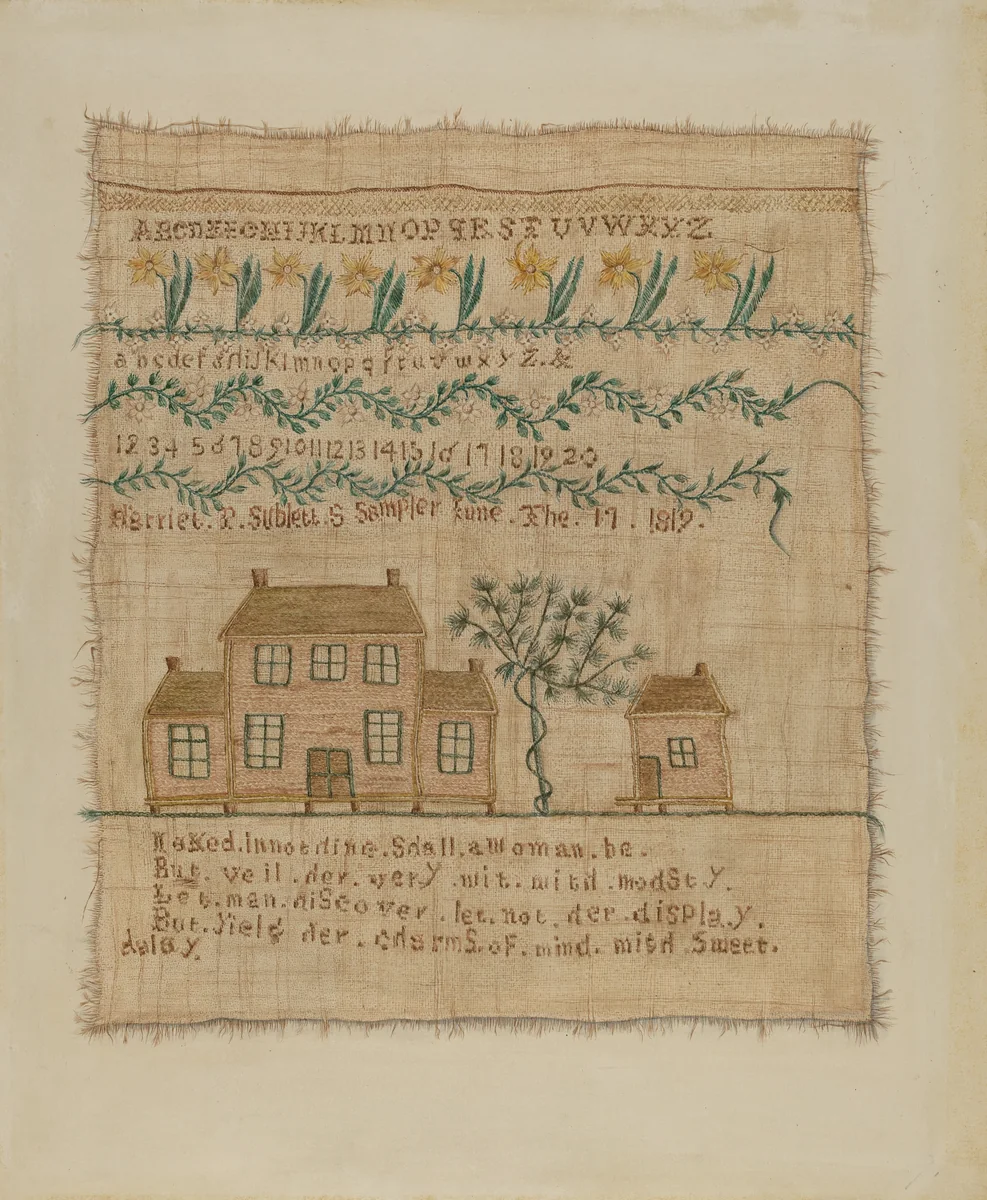 ABCDEFGHIJKLMNOPQRSTUVWXYZ
abcdefghijklmnopqrstuvwxyz.&
1 2 3 4 5 6 7 8 9 10 11 12 13 14 15 16 17 18 19 20
Harriet. P. Sublett. S Sampler June. The. 17. 1819.
Naked. in. .Shall.a woman.be.
But. veil. her. very. wit. with. modSty.
Let.man.diScover.let.not.her.display.
But.Yield her.charmS.of.mind.with Sweet.
delay.